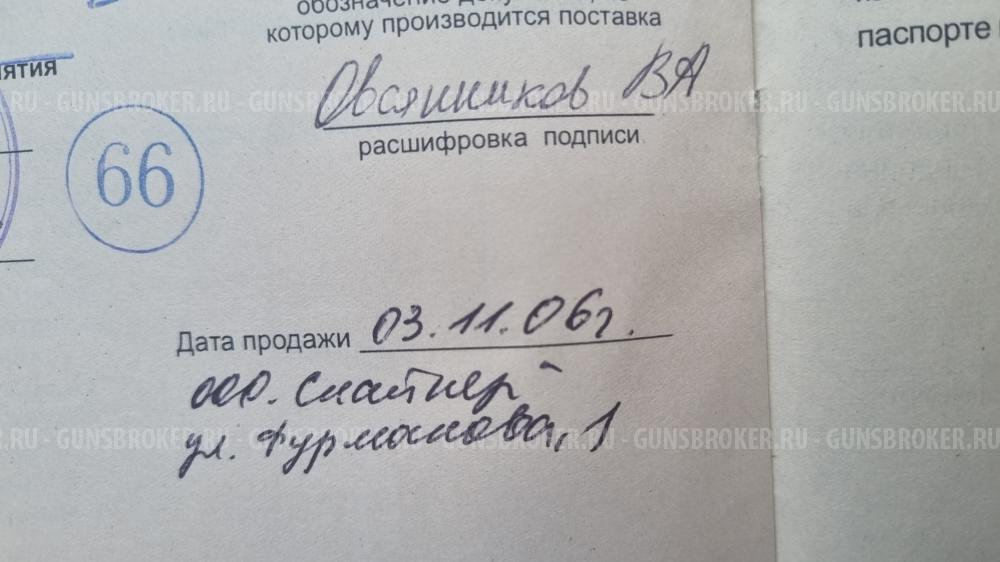 обозначение
которому производится поставка
паспорте
ятия
Овсянников ВА
RU - GUNSBROKER.RU - GUNSBROKER.RU - GUNSBROKER.RU - GUNSBROKER.RU - GUNSBROKER.RU
расшифровка подписи
66
Дата продажи 03.11.06г.
ООО. Снайпер
ул. Фурманова, 1
RU - GUNSBROKER.RU - GUNSBROKER.RU - GUNSBROKER.RU - GUNSBROKER.RU - GUNSBROKER.RU